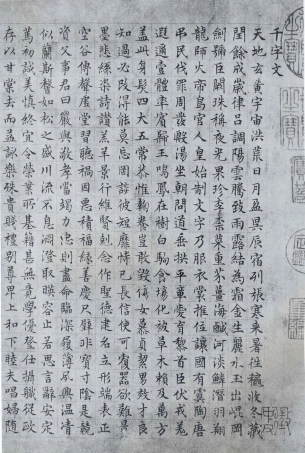 千字文
天地玄黃宇宙洪荒日月盈昃辰宿列張寒來暑往秋收冬藏
閏餘成歲律呂調陽雲騰致雨露結為霜金生麗水玉出崐岡
劍號巨闕珠稱夜光果珍李柰菜重芥薑海鹹河淡鱗潛羽翔
龍師火帝鳥官人皇始制文字乃服衣裳推位讓國有虞陶唐
弔民伐罪周發殷湯坐朝問道垂拱平章愛育黎首臣伏戎羌
遐邇壹體率賓歸王鳴鳳在樹白駒食場化被草木賴及萬方
蓋此身髮四大五常恭惟鞠養豈敢毀傷女慕貞絜男效才良
知過必改得能莫忘罔談彼短靡恃己長信使可覆器欲難量
墨悲絲染詩讚羔羊景行維賢剋念作聖德建名立形端表正
空谷傳聲虛堂習聽禍因惡積福緣善慶尺璧非寶寸陰是競
資父事君曰嚴與敬孝當竭力忠則盡命臨深履薄夙興溫凊
似蘭斯馨如松之盛川流不息淵澄取映容止若思言辭安定
篤初誠美慎終宜令榮業所基籍甚無竟學優登仕攝職從政
存以甘棠去而益詠樂殊貴賤禮別尊卑上和下睦夫唱婦隨